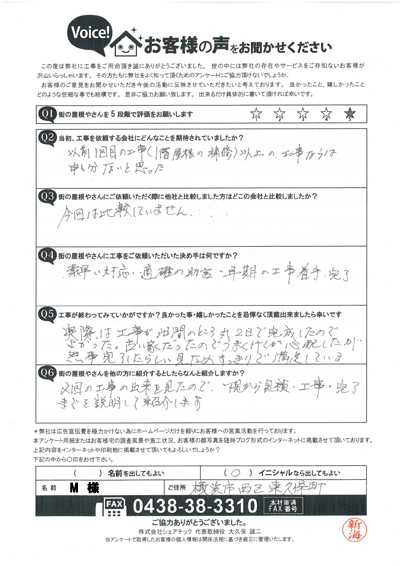 Voice!
お客様の声をお聞かせください
この度は弊社に工事をご用命頂き誠にありがとうございました。世の中には弊社の存在やサービスをご存知ないお客様が
沢山いらっしゃいます。その方たちに弊社をよく知って頂くためのアンケートにご協力頂けないでしょうか。
お客様のご意見をお聞かせいただき今後の活動に反映させていただきたいと考えております。良かったこと、嬉しかったこと
どのような些細な事でも結構です。是非ご協力お願い致します。出来るだけ具体的に書いて頂ければ幸いです。
Q1 街の屋根やさんを5段階で評価をお願いします ☆ ☆ ☆ ☆ ★
Q2 当初、工事を依頼する会社にどんなことを期待されていましたか?
以前1回目の工事(1階屋根の補修)以上の工事ならば
申し分ないと思った
Q3 街の屋根やさんにご依頼いただく際に他社と比較しました方はどこの会社と比較しましたか?
今回は比較していません...
Q4 街の屋根やさんに工事をご依頼いただいた決め手は何ですか?
素早い対応・適確の助言・早期の工事着手、完了
Q5 工事が終わってみていかがですか?良かった事・嬉しかったことを忌憚なく頂戴出来ましたら幸いです
実際は工事が 日間のところ丸2日で完成したので
よかった。古い家だったのでうまくけるか心配したが
無事完了したらしい見ためすっきりで満足している
Q6 街の屋根やさんを他の方に紹介するとしたらなんと紹介しますか?
2回の工事の出来を見たので、一現から見積・工事・完了
までを説明して紹介します
*弊社は広告宣伝費を極力かけない為にホームページだけを頼りにお客様への営業活動を行っております。
本アンケート用紙またはお客様宅の調査風景や施工状況、お客様の顔写真を随時ブログ形式のインターネットに掲載させて頂いております。
上記内容をインターネットや印刷物に掲載させて頂いてもよろしいでしょうか?
下記の中から〇印をお付け下さい。
( )名前を出してもよい (〇)イニシャルなら出してもよい
名前 M 様 ご住所 横浜市西区東久保町
FAX 0438-38-3310 本社直通 FAX番号
ご協力ありがとうございました。
株式会社シェアテック 代表取締役 大久保 誠二
当アンケートで取得したお客様の個人情報は関係法規に基づき厳正に管理いたします。
新海